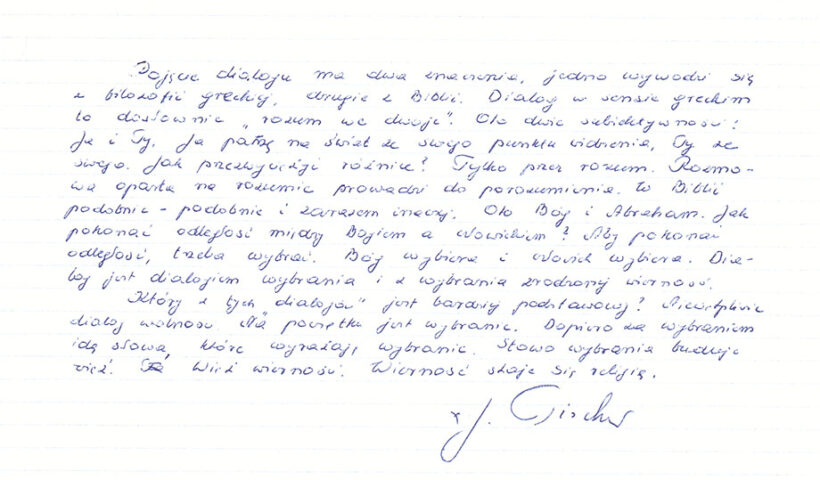 Pojęcie dialogu ma dwa znaczenia, jedno wywodzi się
z filozofii greckiej, drugie z Biblii. Dialog w sensie greckim
to dosłownie „rozum we dwoje". Oto dwie subiektywności:
Ja i Ty. Ja patrzę na świat ze swego punktu widzenia, Ty ze
swego. Jak przezwyciężyć różnice? Tylko przez rozum. Rozmo-
wa oparta na rozumie prowadzi do porozumienia. W Biblii
podobnie - podobnie i zarazem inaczej. Oto Bóg i Abraham. Jak
pokonać odległość między Bogiem a człowiekiem? Aby pokonać
odległość, trzeba wybrać. Bóg wybiera i człowiek wybiera. Dia-
log jest dialogiem wybrania i z wybrania zrodzonej wierności.
Który z tych „dialogów" jest bardziej podstawowy? Niewątpliwie
dialog wolności. Na początku jest wybranie. Dopiero za wybraniem
idą słowa, które wyrażają wybranie. Słowo wybrania buduje
więź. Więź wierności. Wierność staje się religią.
x J. Tischner